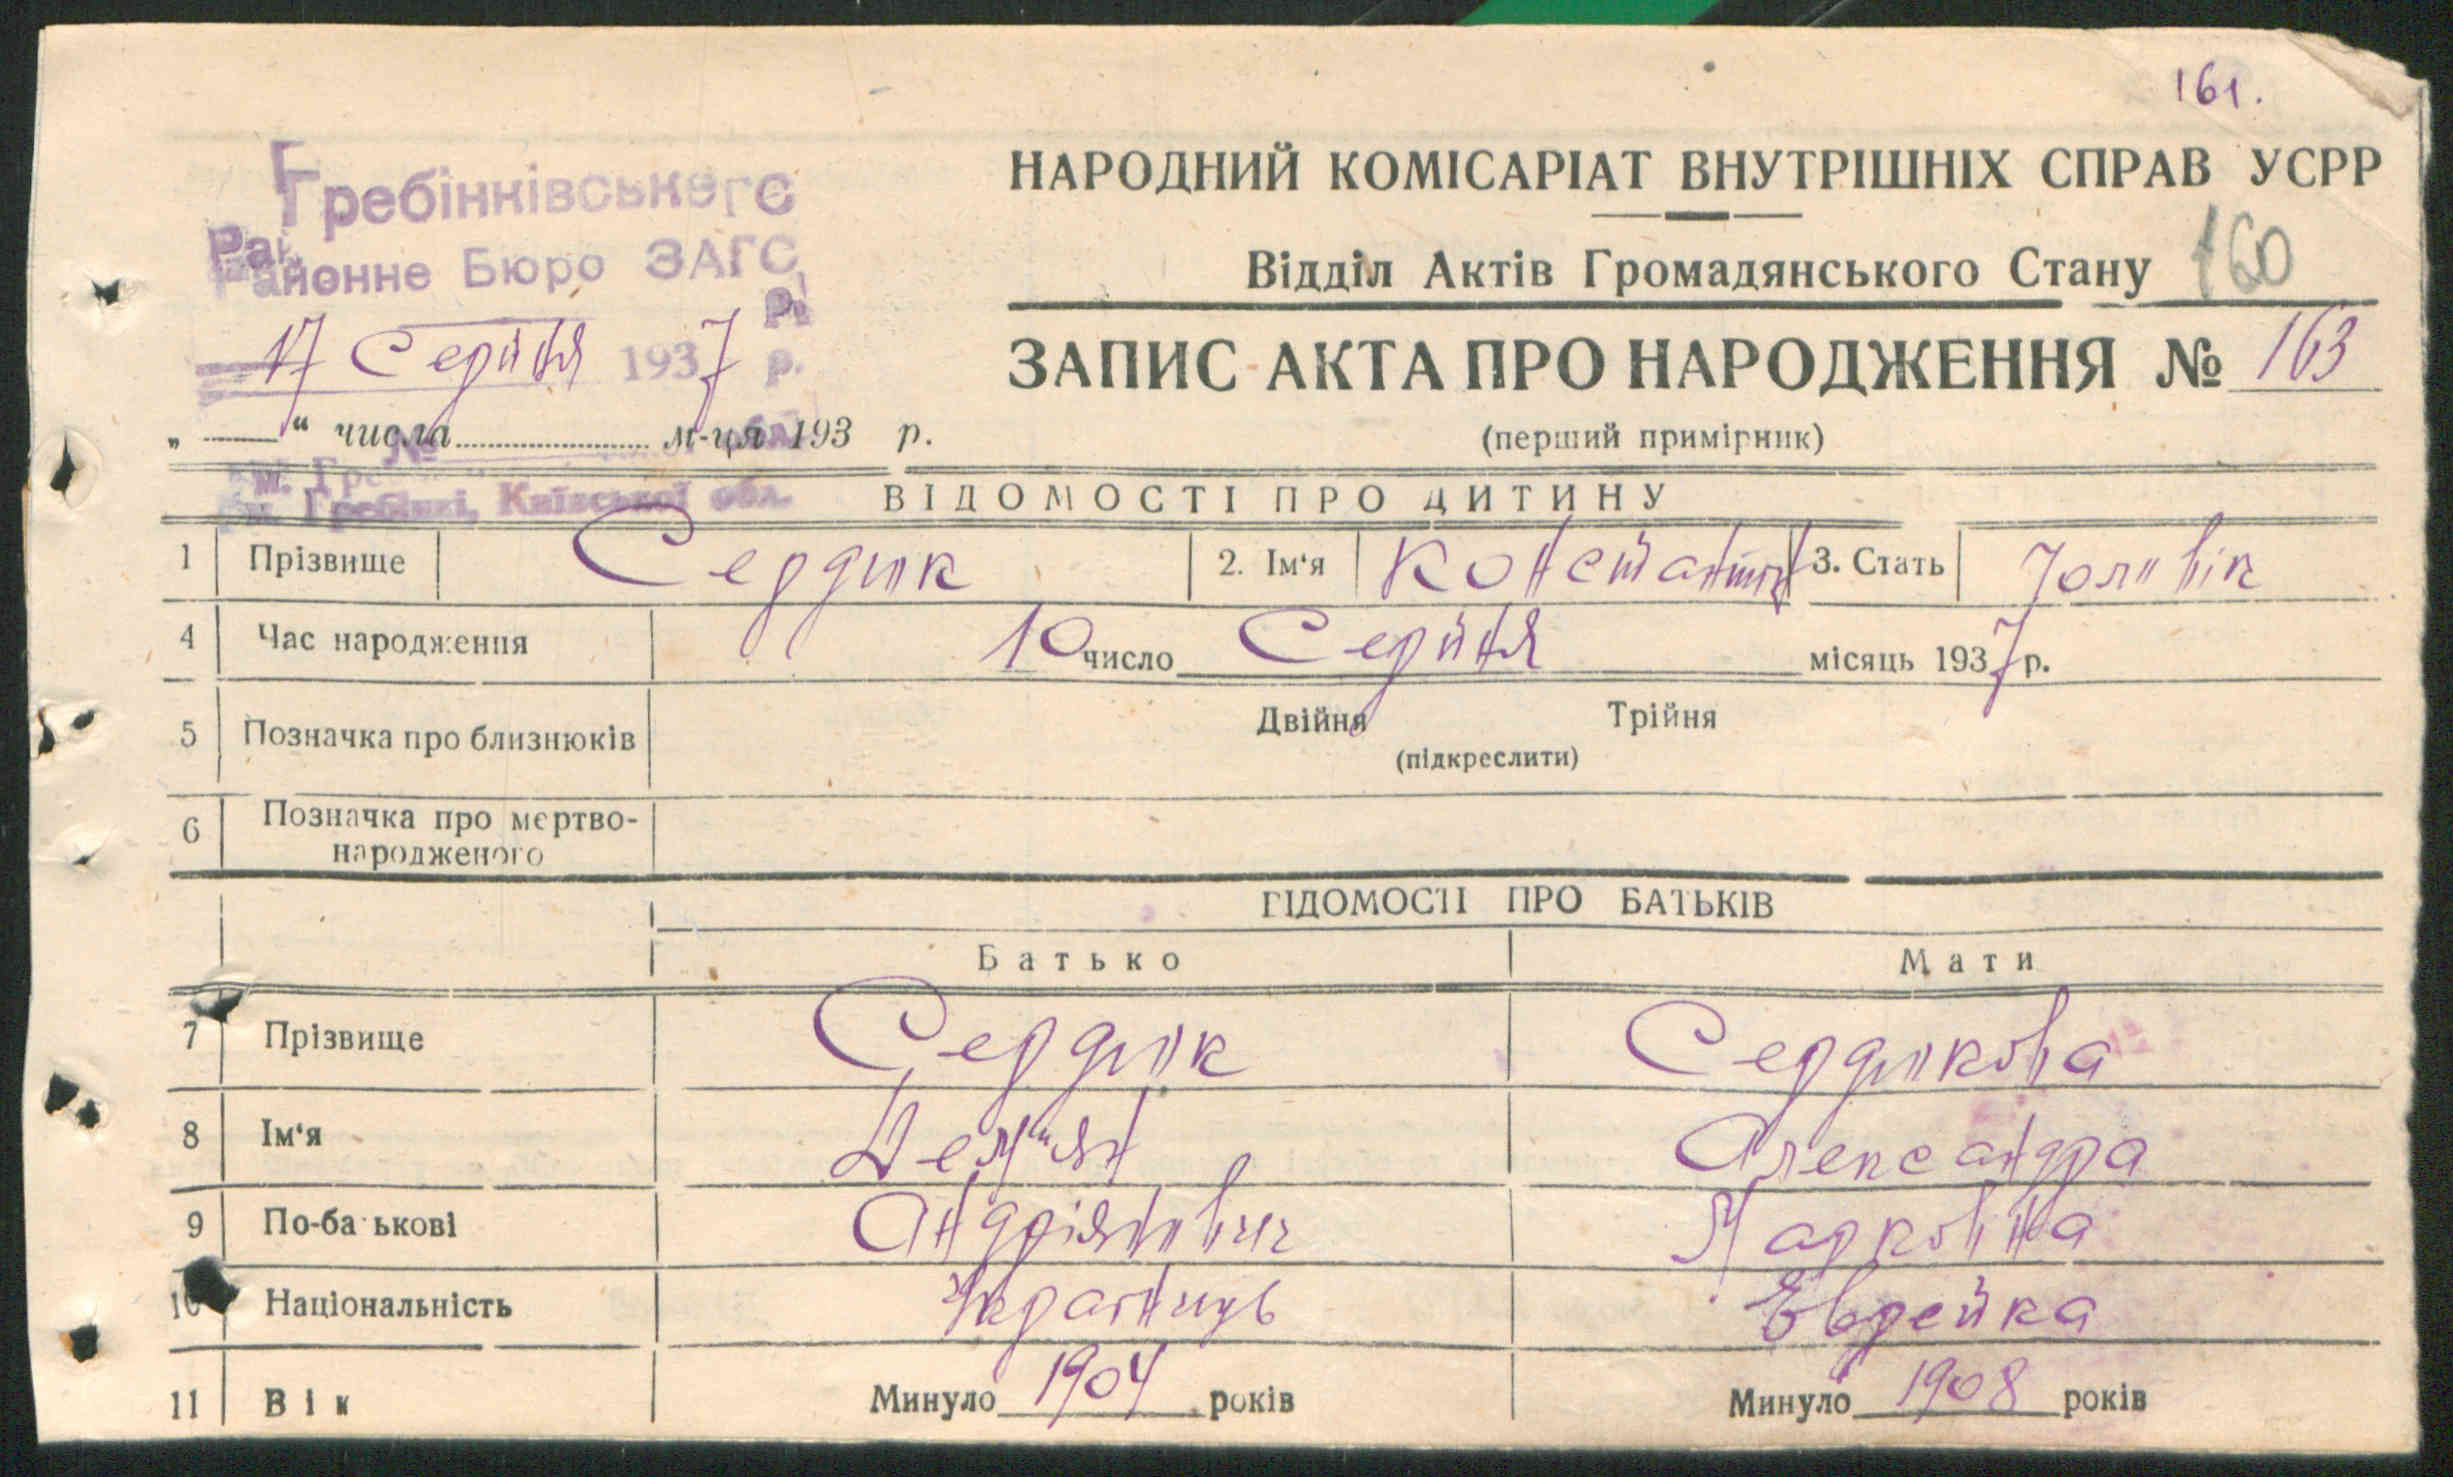 161.
Гребінківського
Районне Бюро ЗАГС
17 Серпня 1937 р.
„ “ числа м-ця 193 р.
№
м. Гребінкі, Київської обл.
НАРОДНИЙ КОМІСАРІАТ ВНУТРІШНІХ СПРАВ УСРР
Відділ Актів Громадянського Стану 160
ЗАПИС АКТА ПРО НАРОДЖЕННЯ № 163
(перший примірник)
ВІДОМОСТІ ПРО ДИТИНУ
1 Прізвище Сердюк 2. Ім'я Константин 3. Стать Чоловік
4 Час народження 10 число Серпня місяць 1937 р.
5 Позначка про близнюків Двійня Трійня
(підкреслити)
6 Позначка про мертво-
народженого
ВІДОМОСТІ ПРО БАТЬКІВ
Батько Мати
7 Прізвище Сердюк Сердюкова
8 Ім'я Дем"ян Александра
9 По-батькові Андріянович Марковна
10 Національність Украинць Еврейка
11 Вік Минуло 1904 років Минуло 1908 років